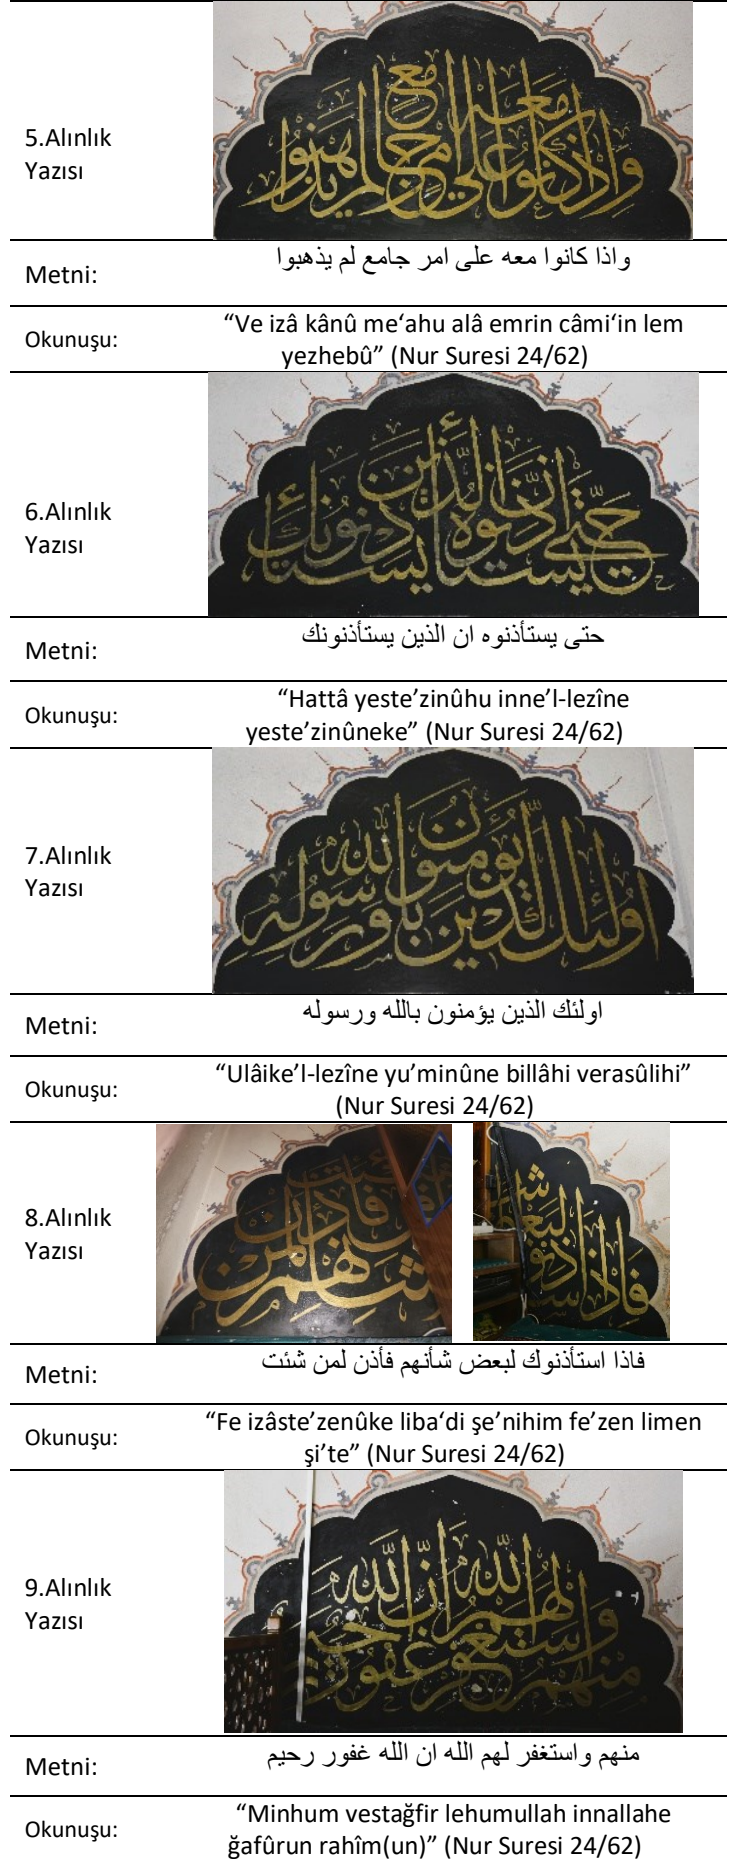 5.Alınlık
Yazısı
وَاِذَا كَانُوا مَعَهُ عَلٰى اَمْرٍ جَامِعٍ لَمْ يَذْهَبُوا
Metni:
واذا كانوا معه على امر جامع لم يذهبوا
Okunuşu:
“Ve izâ kânû me‘ahu alâ emrin câmi‘in lem
yezhebû” (Nur Suresi 24/62)
6.Alınlık
Yazısı
حَتّٰى يَسْتَأْذِنُوهُ اِنَّ الَّذِينَ يَسْتَأْذِنُونَكَ
Metni:
حتى يستأذنوه ان الذين يستأذنونك
Okunuşu:
“Hattâ yeste’zinûhu inne’l-lezîne
yeste’zinûneke” (Nur Suresi 24/62)
7.Alınlık
Yazısı
اُولٰئِكَ الَّذِينَ يُؤْمِنُونَ بِاللّٰهِ وَرَسُولِهِ
Metni:
اولئك الذين يؤمنون بالله ورسوله
Okunuşu:
“Ulâike’l-lezîne yu’minûne billâhi verasûlihi”
(Nur Suresi 24/62)
8.Alınlık
Yazısı
شأنهم فأذن لمن شئت
فاذا استأذنوك لبعض
Metni:
فاذا استأذنوك لبعض شأنهم فأذن لمن شئت
Okunuşu:
“Fe izâste’zenûke liba‘di şe’nihim fe’zen limen
şi’te” (Nur Suresi 24/62)
9.Alınlık
Yazısı
منهم واستغفر لهم الله ان الله غفور رحيم
Metni:
منهم واستغفر لهم الله ان الله غفور رحيم
Okunuşu:
“Minhum vestağfir lehumullah innallahe
ğafûrun rahîm(un)” (Nur Suresi 24/62)